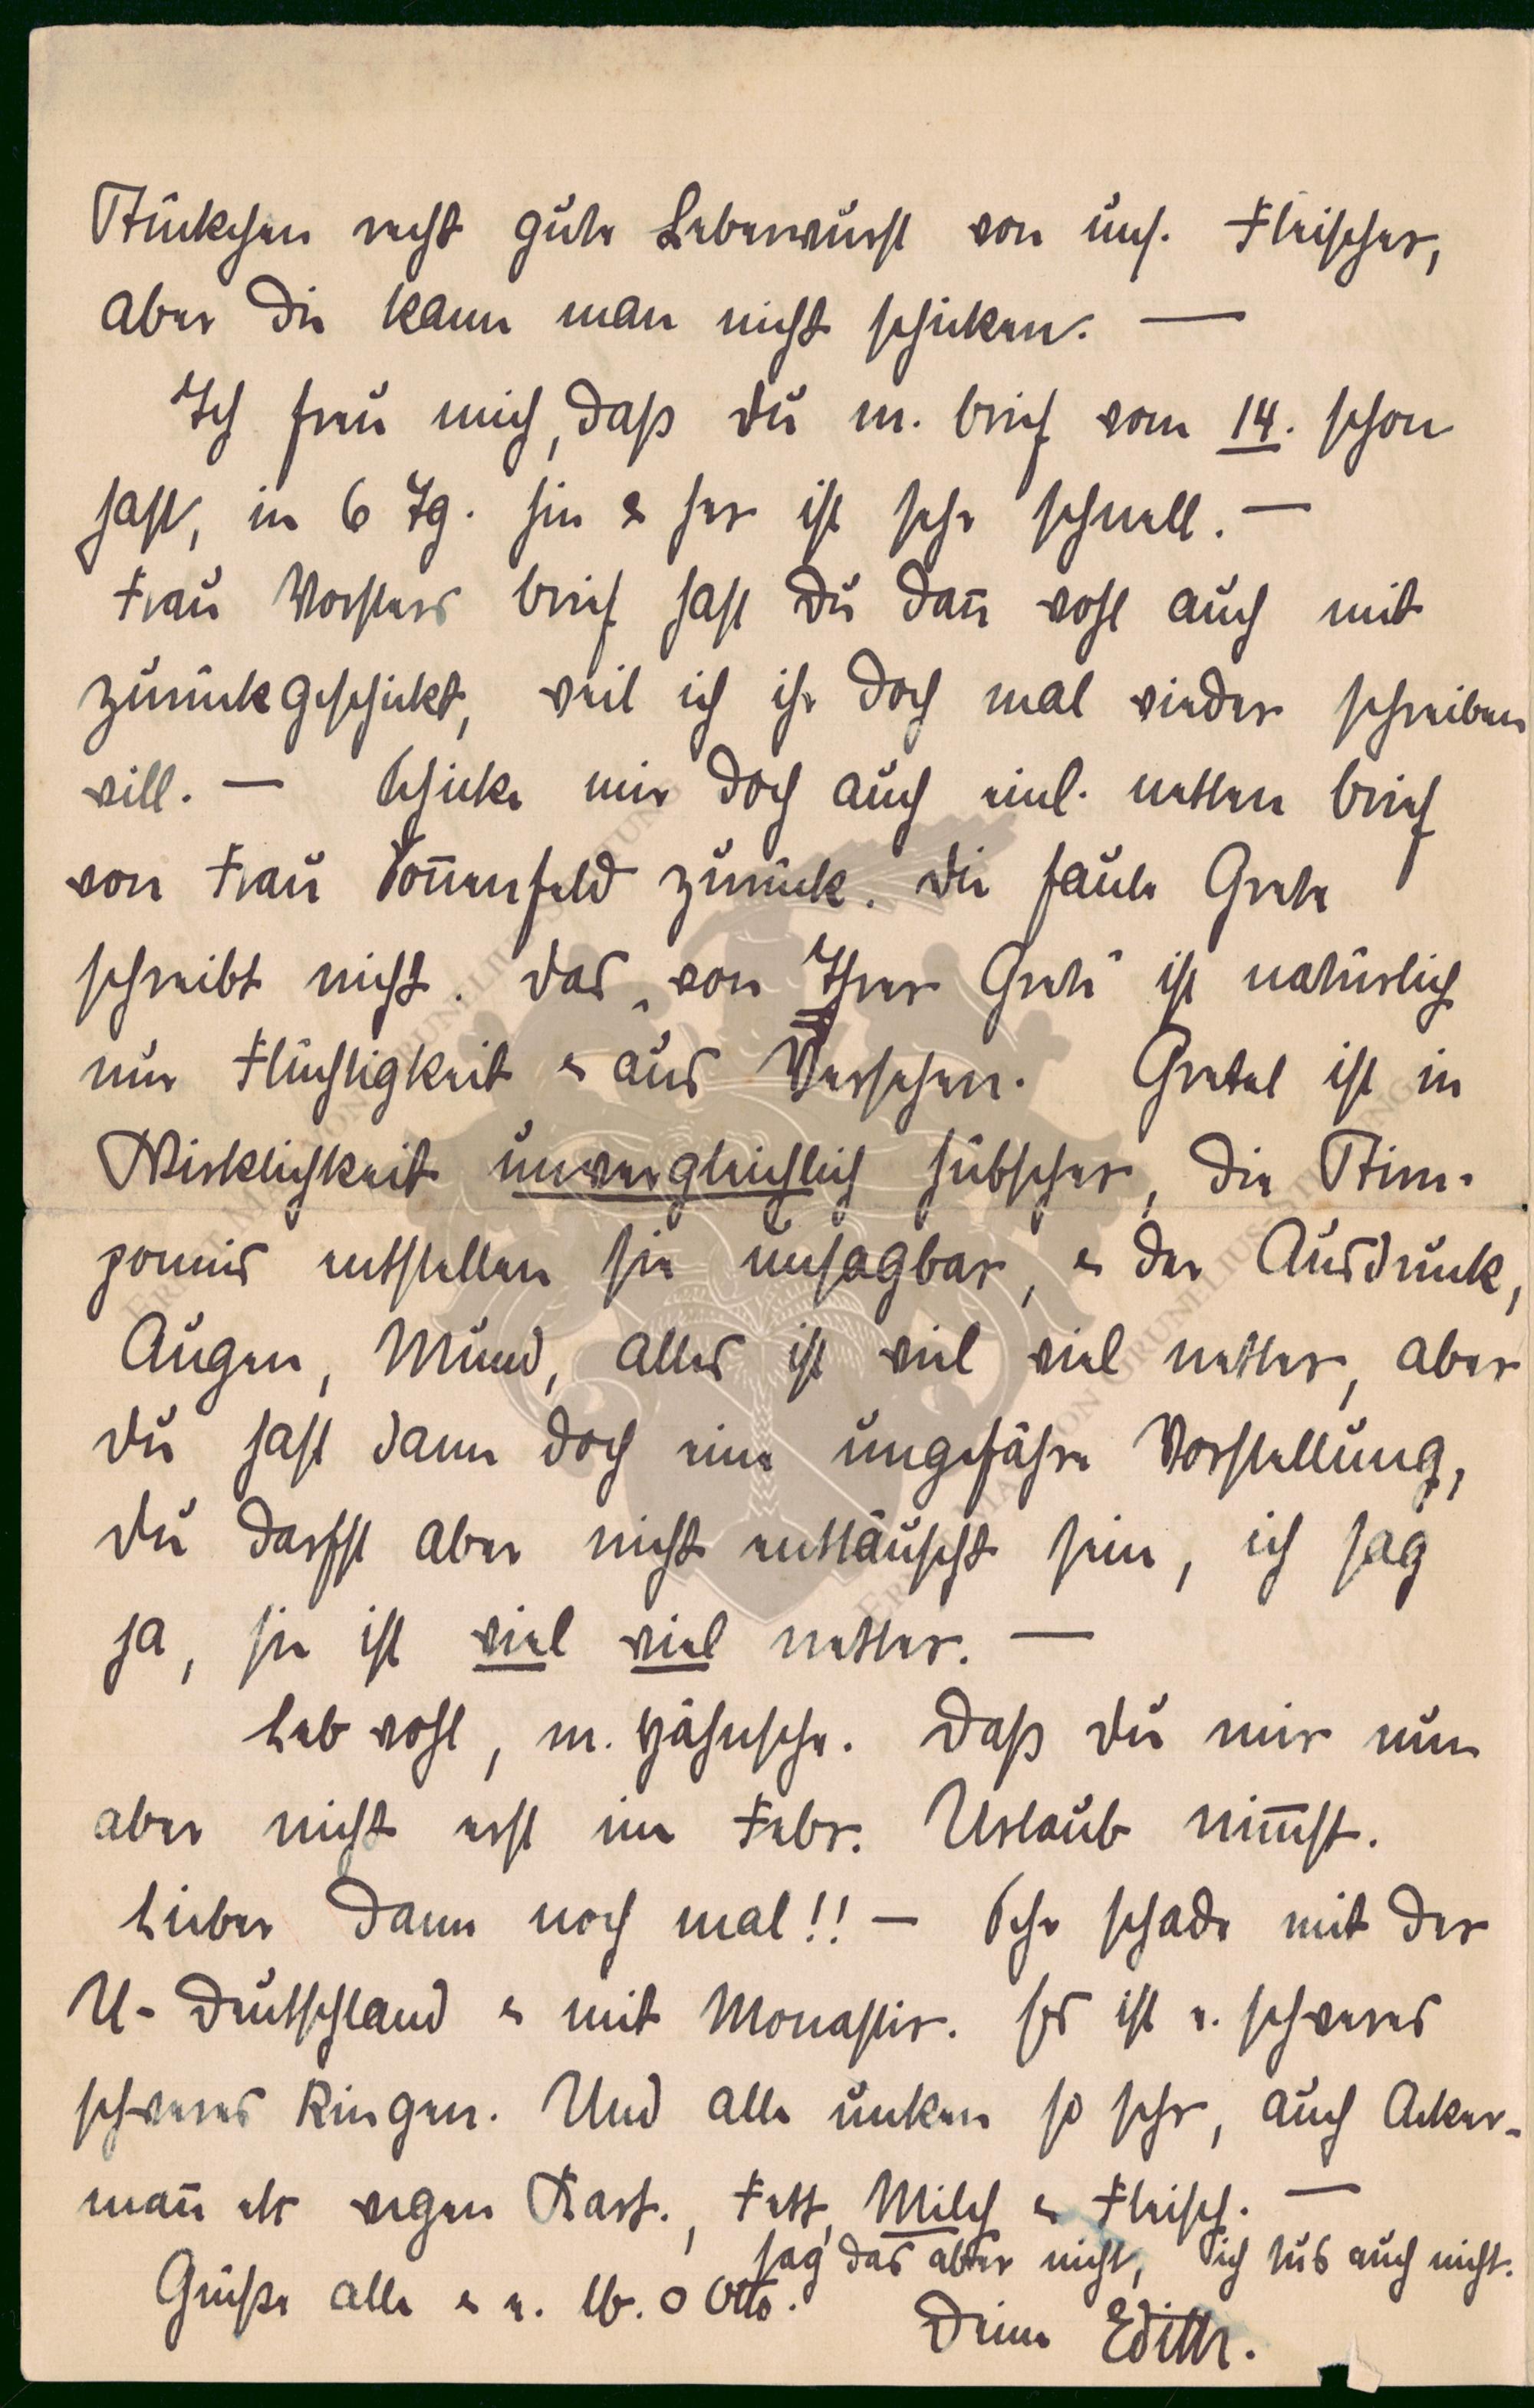 Stückchen recht gute Leberwurst von uns. Fleischer,
aber die kann man nicht schicken. —
Ich freu mich, daß Du m. Brief vom 14. schon
hast, in 6 Tg. hin & her ist sehr schnell. —
Frau Vorsters Brief hast Du dan̄ wohl auch mit
zurückgeschickt, weil ich ihr doch mal wieder schreiben
will. — Schicke mir doch auch einl. netten Brief
von Frau Son̄enfeld zurück. Die faule Grete
schreibt nicht. Das „von Ihrer Grete" ist natürlich
nur Flüchtigkeit & aus Versehen. Gretel ist in
Wirklichkeit unvergleichlich hübscher, die Stirn-
ponnis entstellen sie unsagbar, & der Ausdruck,
Augen, Mund, alles ist viel viel netter, aber
Du hast dann doch eine ungefähre Vorstellung,
Du darfst aber nicht enttäuscht sein, ich sag
ja, sie ist viel viel netter. —
Leb wohl, m. Hähnsche. Daß Du mir nun
aber nicht erst im Febr. Urlaub nim̄st.
Lieber dann noch mal!! — Sehr schade mit der
U-Deutschland & mit Monastir. Es ist e. schweres
schweres Ringen. Und alle unken so sehr, auch Acker-
man̄ etc wegen Kart., Fett, Milch & Fleisch. —
sag das aber nicht, ich tus auch nicht.
Grüße alle & e. lb. O Otto.
Deine Edith.